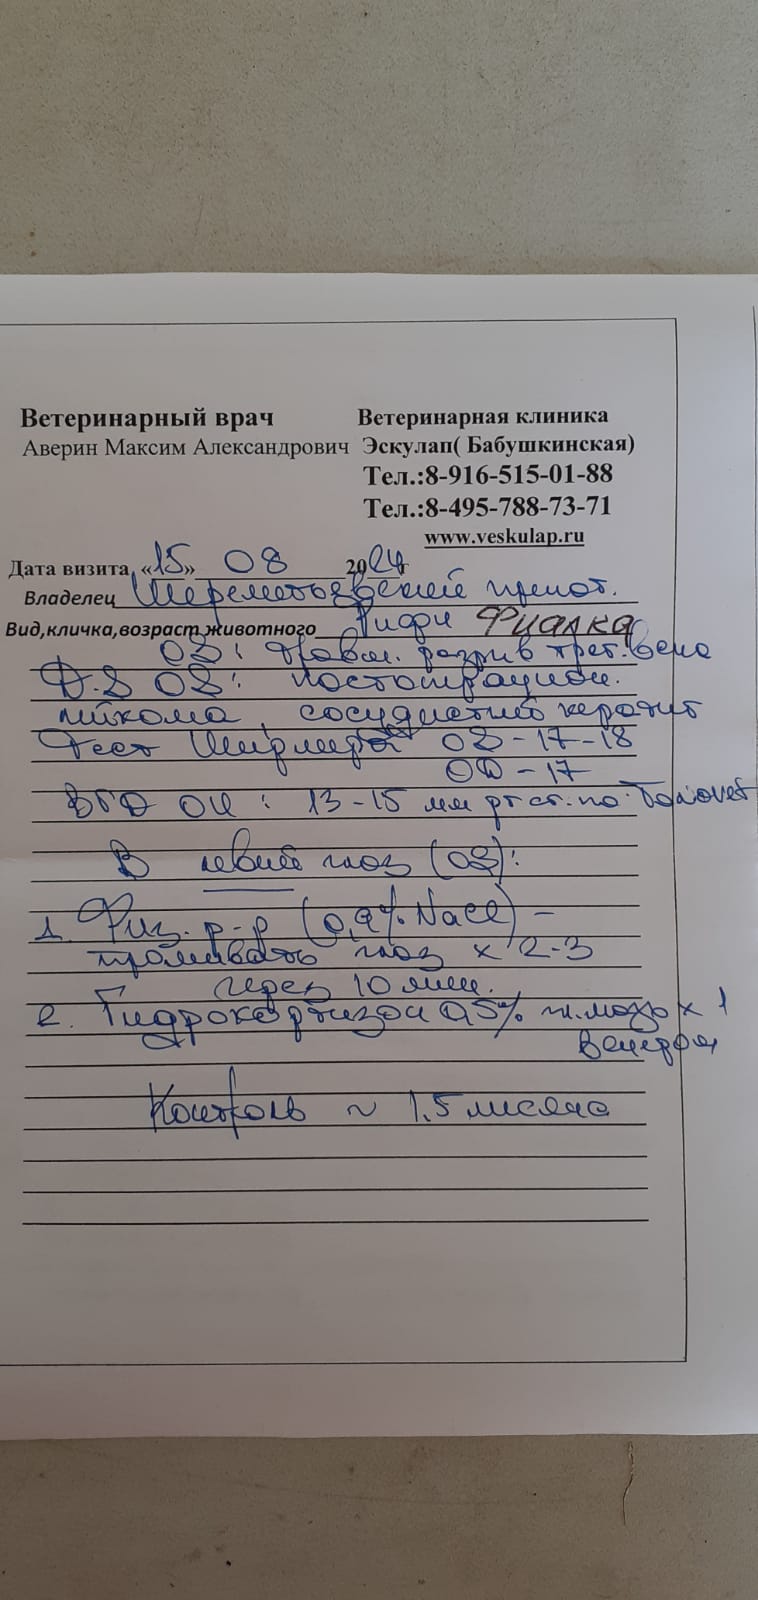 Ветеринарный врач Ветеринарная клиника
Аверин Максим Александрович Эскулап( Бабушкинская)
Тел.:8-916-515-01-88
Тел.:8-495-788-73-71
www.veskulap.ru
Дата визита «15» 08 2024г
Владелец Шереметьевский приют.
Вид,кличка,возраст животного Фиалка
OS: разрыв трет. века
D.S OS: постоперацион.
лейкома, сосудистый кератит
Тест Ширмера OS-17-18
OD-17
ВГД OU: 13-15 мм рт ст. по Tonovet
В левый глаз (OS):
1. Физ. р-р (0,9% NaCl) -
промывать глаз х 2-3
через 10 мин.
2. Гидрокортизон 0,5% гл. мазь х 1
вечером
Контроль ~ 1,5 месяца